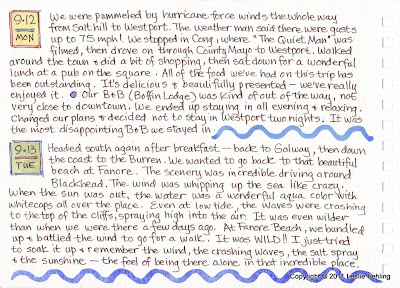 9·12
MON
We were pummeled by hurricane force winds the whole way
from Salthill to Westport. The weather man said there were gusts
up to 75 mph! We stopped in Cong, where "The Quiet Man" was
filmed, then drove on through County Mayo to Westport. Walked
around the town & did a bit of shopping, then sat down for a wonderful
lunch at a pub on the square. All of the food we've had on this trip has
been outstanding. It's delicious & beautifully presented — we've really
enjoyed it. Our B+B (Boffin Lodge) was kind of out of the way, not
very close to downtown. We ended up staying in all evening & relaxing.
Changed our plans & decided not to stay in Westport two nights. It was
the most disappointing B+B we stayed in.
9·13
TUE
Headed south again after breakfast — back to Galway, then down
the coast to the Burren. We wanted to go back to that beautiful
beach at Fanore. The scenery was incredible driving around
Blackhead. The wind was whipping up the sea like crazy.
When the sun was out, the water was a wonderful aqua color with
whitecaps all over the place. Even at low tide, the waves were crashing
to the top of the cliffs, spraying high into the air. It was even wilder
than when we were there a few days ago. At Fanore Beach, we bundled
up & battled the wind to go for a walk. It was WILD!! I just tried
to soak it up & remember the wind, the crashing waves, the salt spray
& the sunshine — the feel of being there alone in that incredible place.
Copyright © 2011 Leslie Fehling